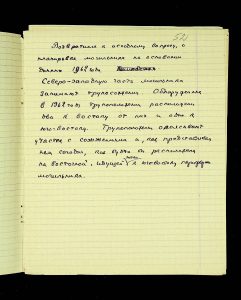 52
Возвратимся к основному вопросу, о
планировке могильника на основании
данных 1962 года.
Северо-западную часть могильника
занимают трупосожжения. Обнаруженные
в 1962 году трупоположения расположены
два к востоку от них и одно к
юго-востоку. Трупоположения
участок с сожжениями и, как представляется
нам сегодня, как бы они расположены
на восточной, к юговостоку периферии
могильника.